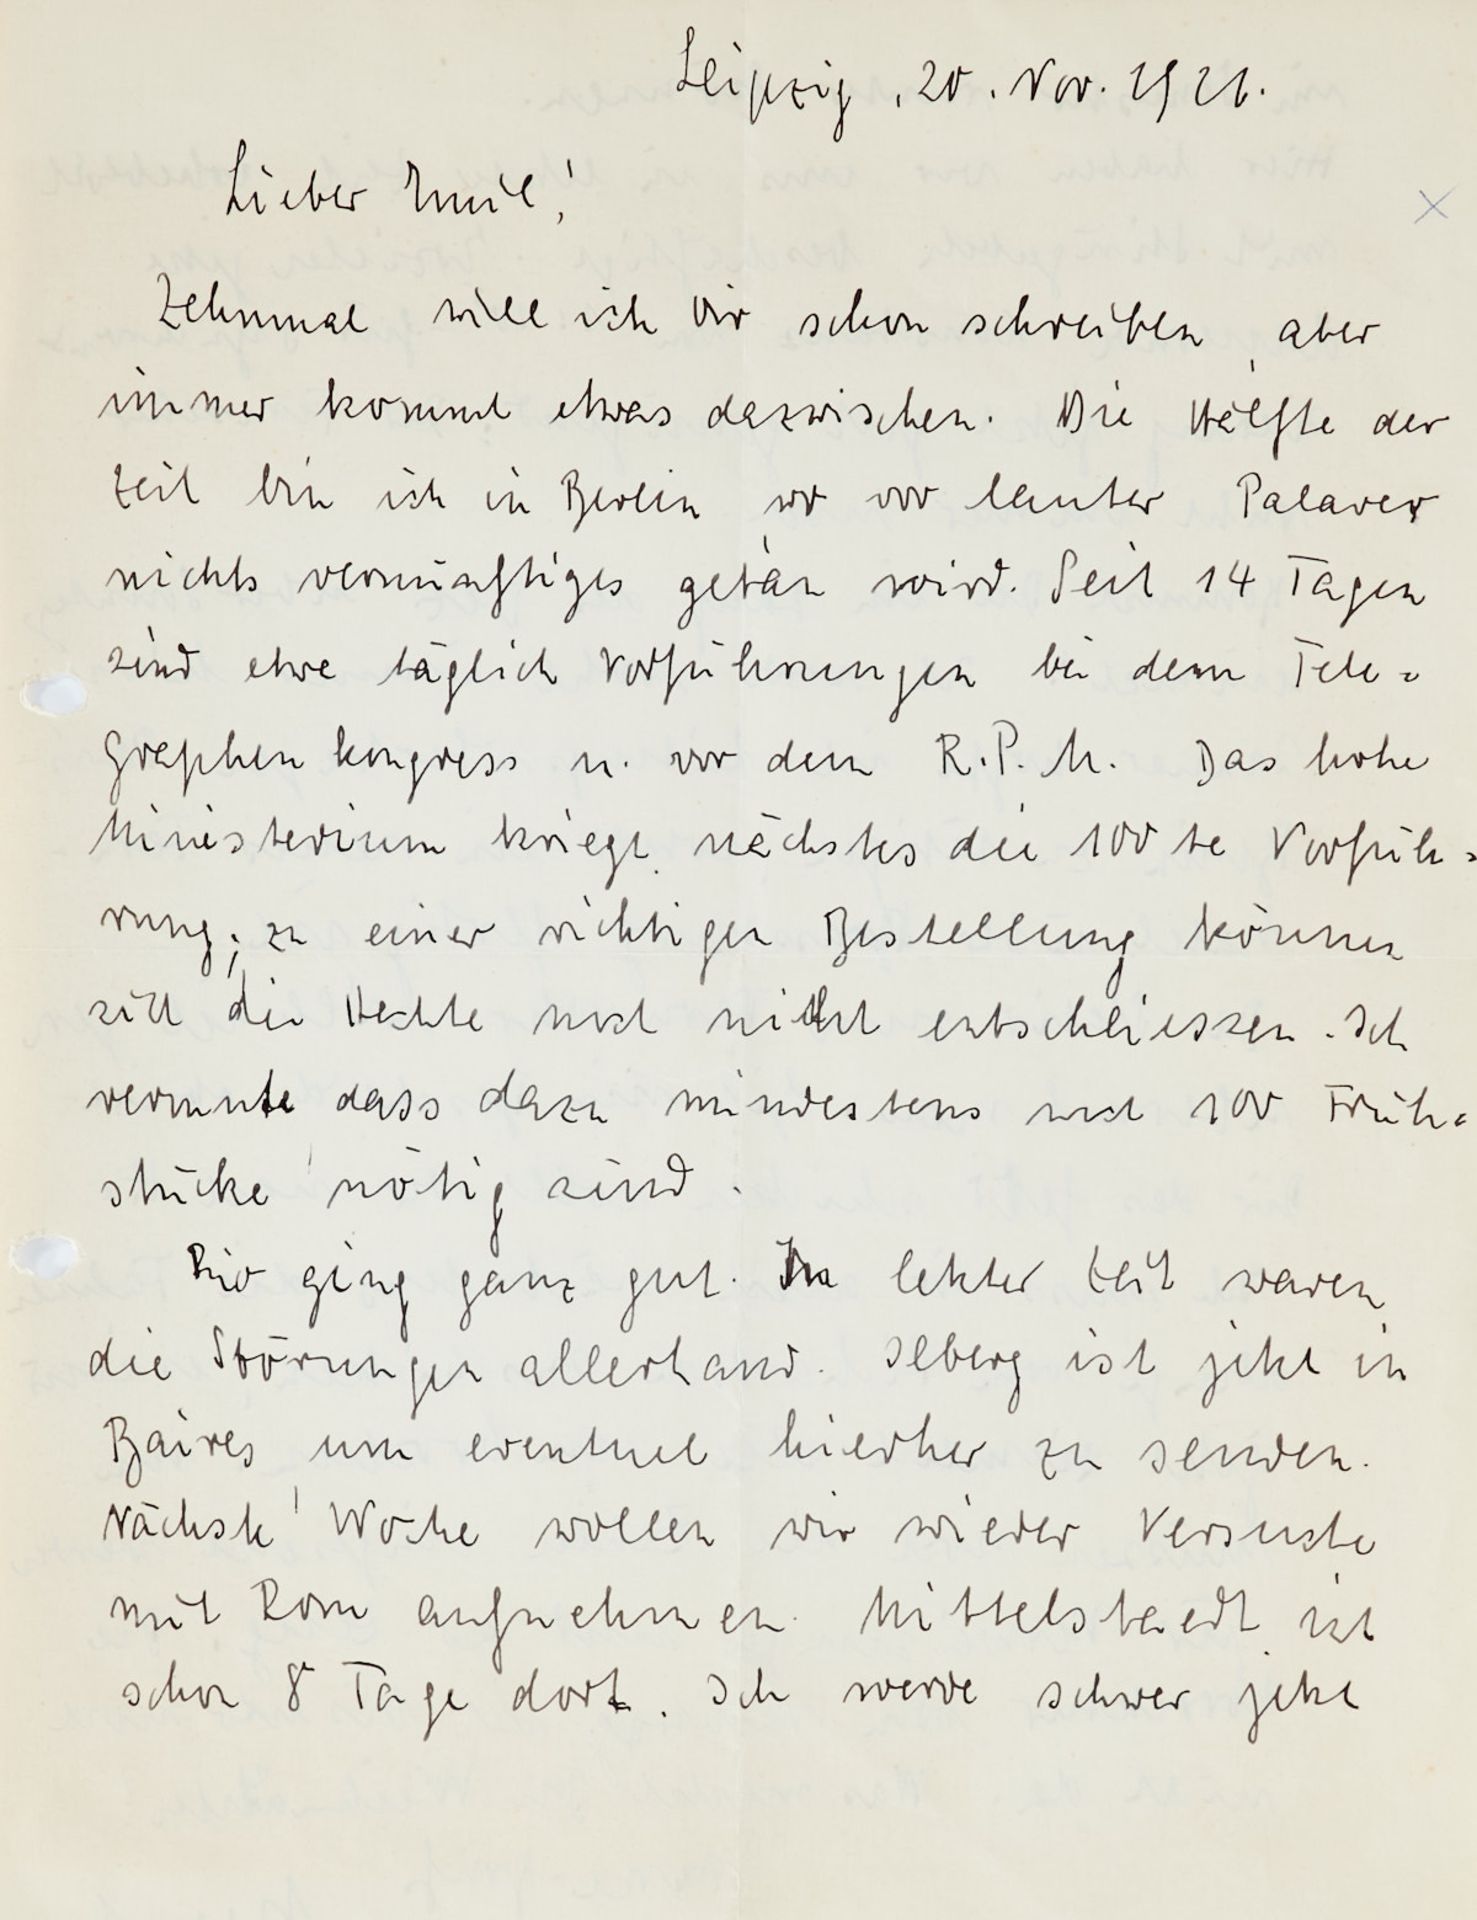 Leipzig, 20. Nov. 1921.
Lieber Emil!
Zehnmal will ich Dir schon schreiben, aber
immer kommt etwas dazwischen. Die Hälfte der
Zeit bin ich in Berlin, wo vor lauter Palaver
nichts vernünftiges getan wird. Seit 14 Tagen
sind etwa täglich Vorführungen bei dem Tele=
Graphenkongress u. vor dem R.P.M. Das hohe
Ministerium kriegt nächstes die 100te Vorfüh=
rung; zu einer richtigen Bestellung können
sich die Hechte noch nicht entschliessen. Ich
vermute, dass dazu mindestens noch 100 Früh=
stücke nötig sind.
Rio ging ganz gut. In letzter Zeit waren
die Störungen allerhand. Ilberg ist jetzt in
Baires, um eventuel hierher zu senden.
Nächste Woche wollen wir wieder Versuche
mit Rom aufnehmen. Mittelstaedt ist
schon 8 Tage dort. Ich werde schwer jetzt